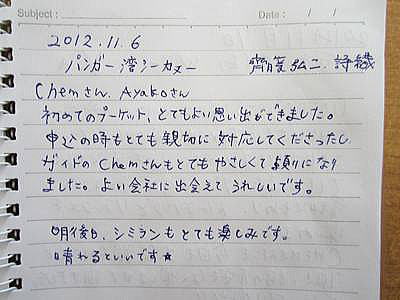 Subject :
Date : / /
2012.11.6
パンガー湾シーカヌー 齊度弘二. 詩織
Chemさん、Ayakoさん
初めてのプーケット、とてもよい思い出ができました。
申込の時もとても親切に対応してくださったし
ガイドのChemさんもとてもやさしくて頼りになり
ました。よい会社に出会えてうれしいです。
明後日、シミランもとても楽しみです。
晴れるといいです★